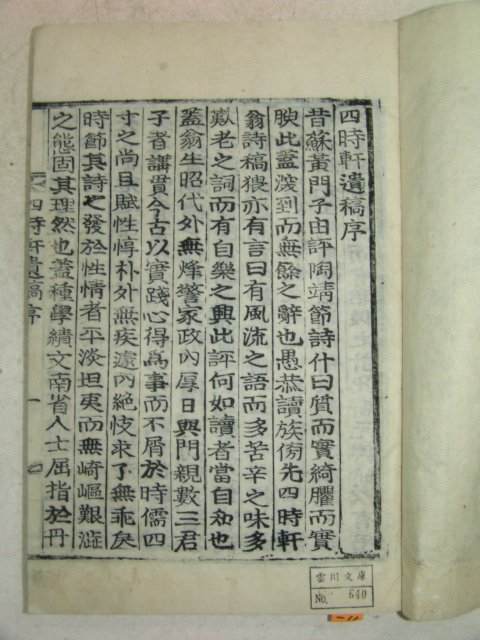 四時軒遺稿序
昔蘇黃門子由評陶靖節詩什曰質而實綺臞而實
腴此蓋深到而無餘之辭也愚恭讀族傍先四時軒
翁詩稿猥亦有言曰有風流之語而多苦辛之味多
歎老之詞而有自樂之興此評何如讀者當自知也
蓋翁生昭代外無烽警家政內厚日與門親數三君
子者講貫今古以實踐心得爲事而不屑於時儒四
寸之尚且賦性惇朴外無疾遠的絶忮求了無乖戾
時節其詩之發於性情者平淡坦夷而無崎嶇艱澁
之態固其理然也蓋種學績文南省人士屈指於丹
四時軒遺稿序
一
雲川文庫
No. 640